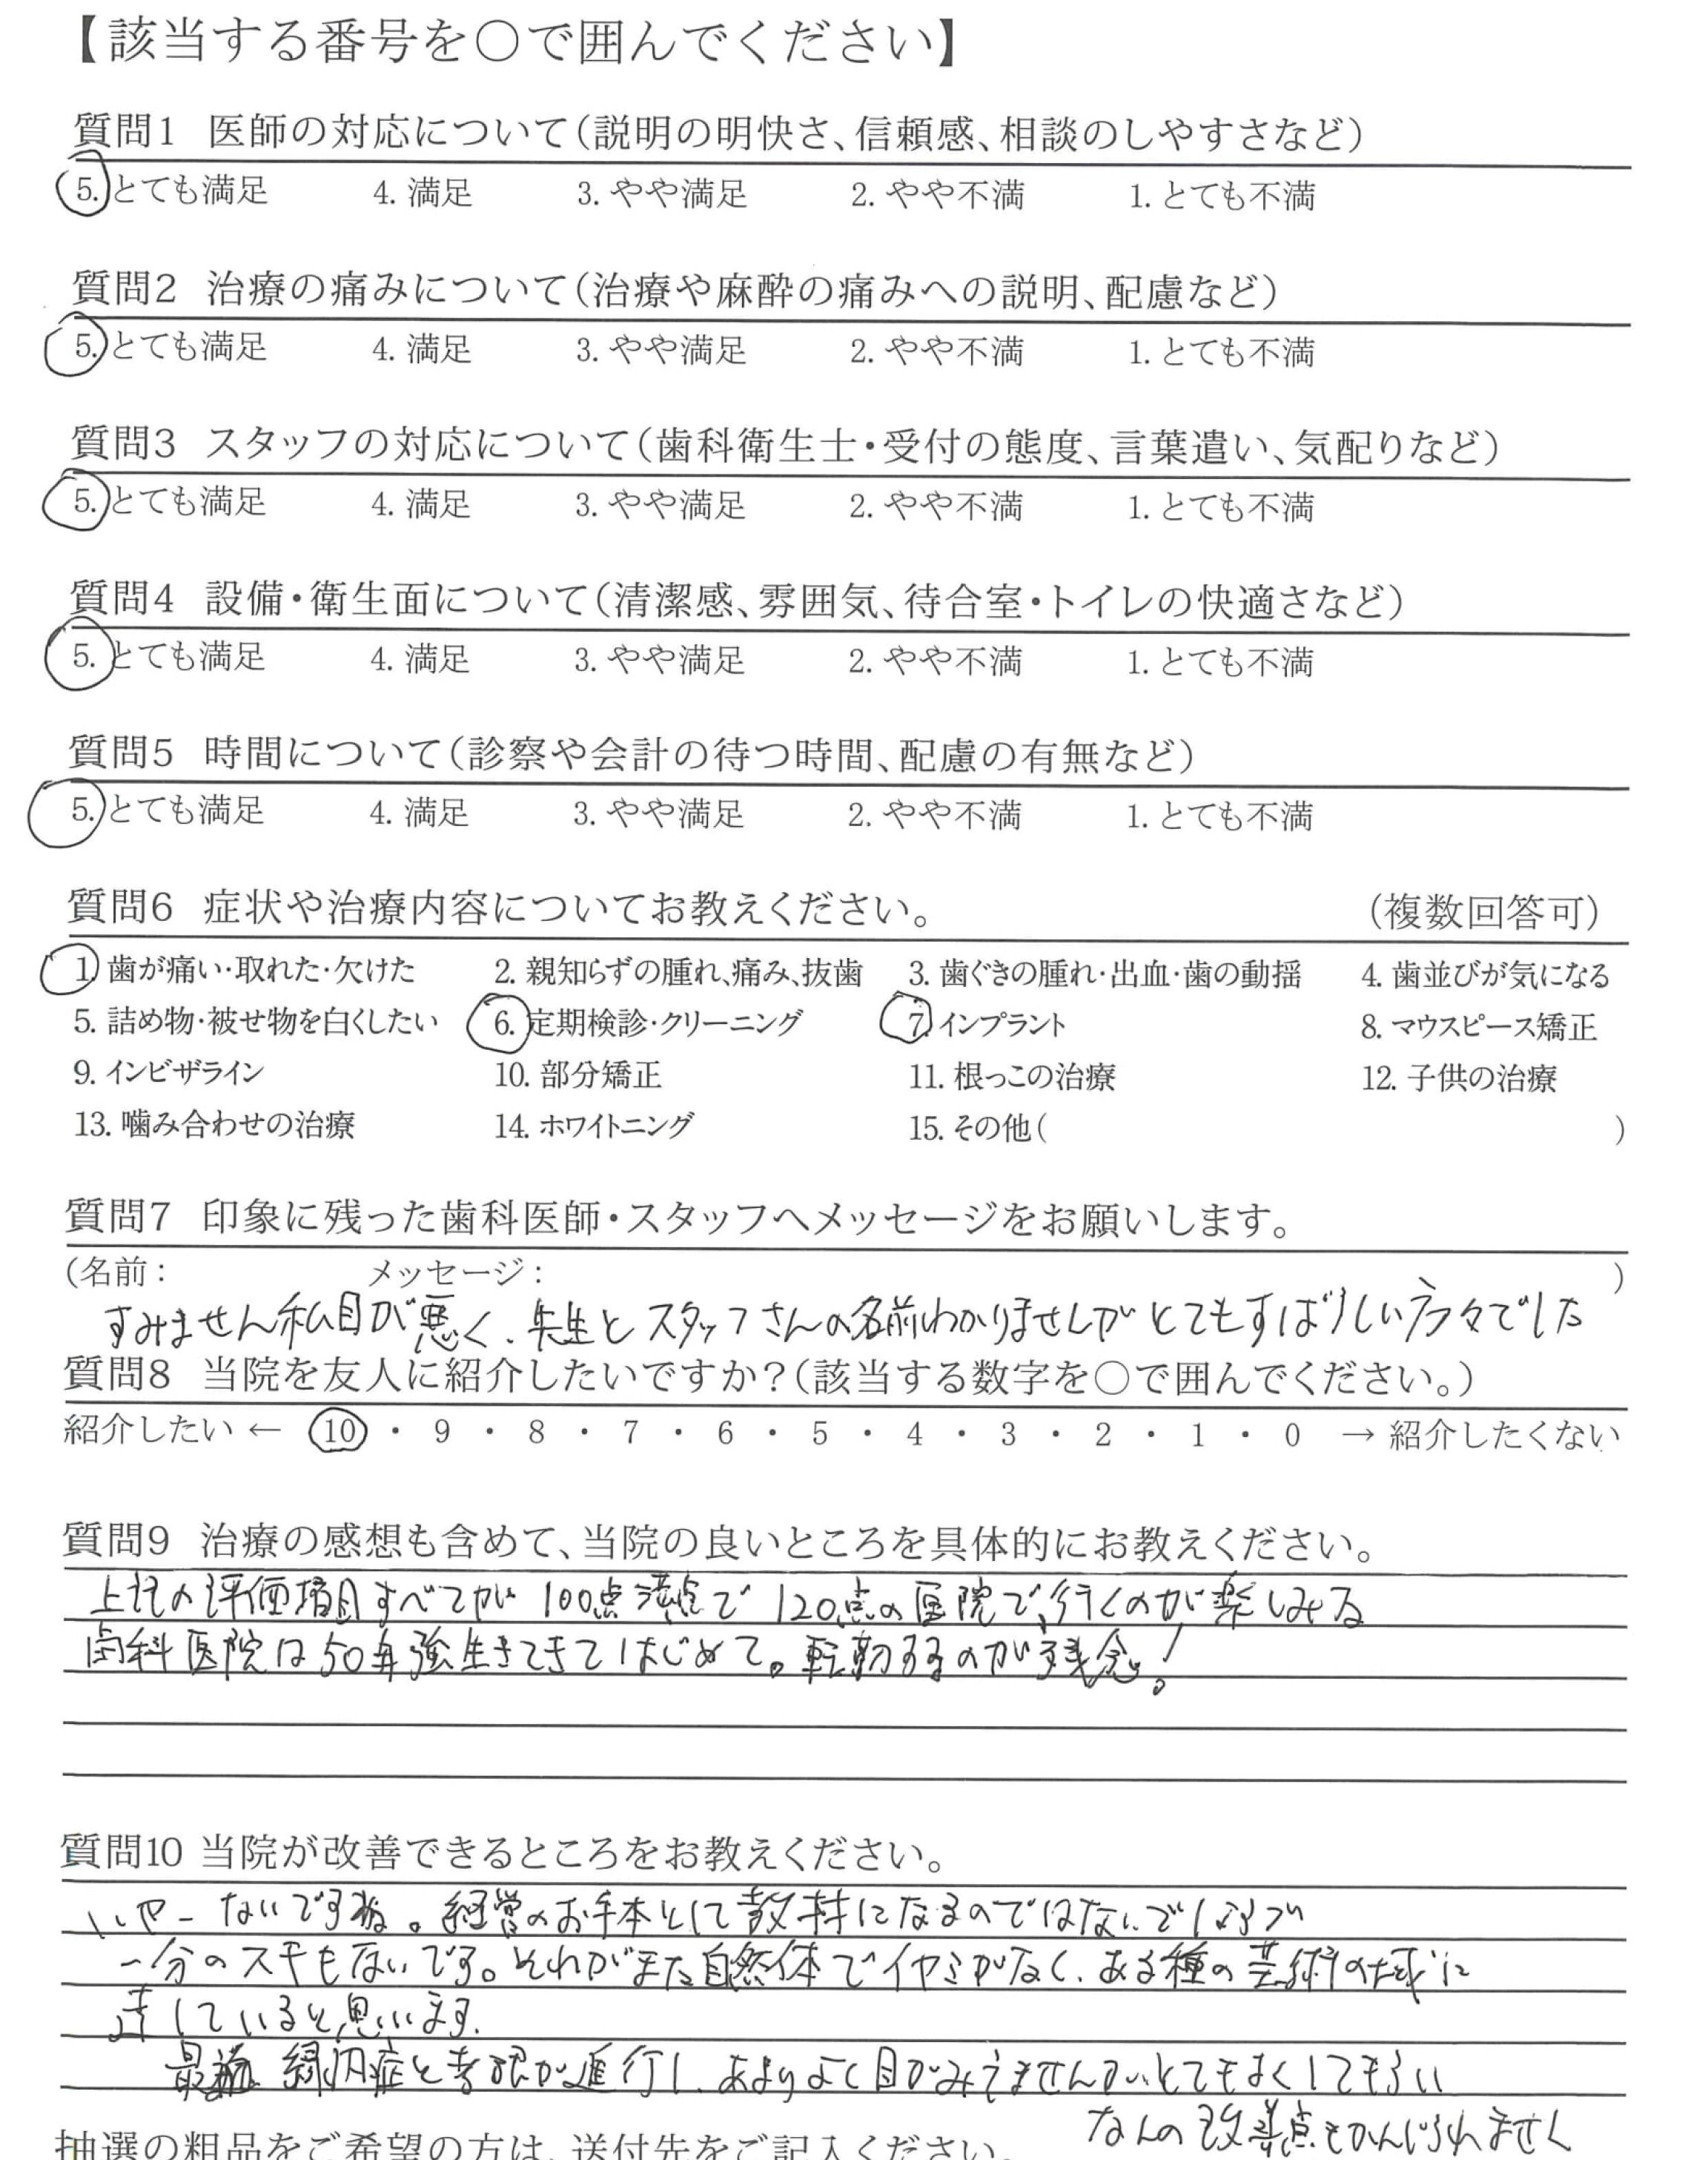 【該当する番号を〇で囲んでください】
質問1 医師の対応について（説明の明快さ、信頼感、相談のしやすさなど）
5. とても満足 4. 満足 3. やや満足 2. やや不満 1. とても不満
質問2 治療の痛みについて（治療や麻酔の痛みへの説明、配慮など）
5. とても満足 4. 満足 3. やや満足 2. やや不満 1. とても不満
質問3 スタッフの対応について（歯科衛生士・受付の態度、言葉遣い、気配りなど）
5. とても満足 4. 満足 3. やや満足 2. やや不満 1. とても不満
質問4 設備・衛生面について（清潔感、雰囲気、待合室・トイレの快適さなど）
5. とても満足 4. 満足 3. やや満足 2. やや不満 1. とても不満
質問5 時間について（診察や会計の待つ時間、配慮の有無など）
5. とても満足 4. 満足 3. やや満足 2. やや不満 1. とても不満
質問6 症状や治療内容についてお教えください。 （複数回答可）
1. 歯が痛い・取れた・欠けた 2. 親知らずの腫れ、痛み、抜歯 3. 歯ぐきの腫れ・出血・歯の動揺 4. 歯並びが気になる
5. 詰め物・被せ物を白くしたい 6. 定期検診・クリーニング 7. インプラント 8. マウスピース矯正
9. インビザライン 10. 部分矯正 11. 根っこの治療 12. 子供の治療
13. 噛み合わせの治療 14. ホワイトニング 15. その他（ ）
質問7 印象に残った歯科医師・スタッフへメッセージをお願いします。
（名前： メッセージ： ）
すみません私目が悪く、先生とスタッフさんの名前わかりませんがとてもすばらしい方々でした
質問8 当院を友人に紹介したいですか？（該当する数字を〇で囲んでください。）
紹介したい ← 10 ・ 9 ・ 8 ・ 7 ・ 6 ・ 5 ・ 4 ・ 3 ・ 2 ・ 1 ・ 0 → 紹介したくない
質問9 治療の感想も含めて、当院の良いところを具体的にお教えください。
上記の評価項目すべてが100点満点で120点の医院で、行くのが楽しみな
歯科医院は50年強生きてきてはじめて。転勤するのが残念！
質問10 当院が改善できるところをお教えください。
いやーないですね。経営のお手本として教材になるのではないでしょうか
一分のスキもないです。それがまた自然体でイヤミがなく、ある種の芸術の域に
達していると思います。
最近 緑内症と老眼が進行し、あまりよく目がみえませんが、とてもよくしてもらい
なんの改善点もかんじられません
抽選の粗品をご希望の方は、送付先をご記入ください。